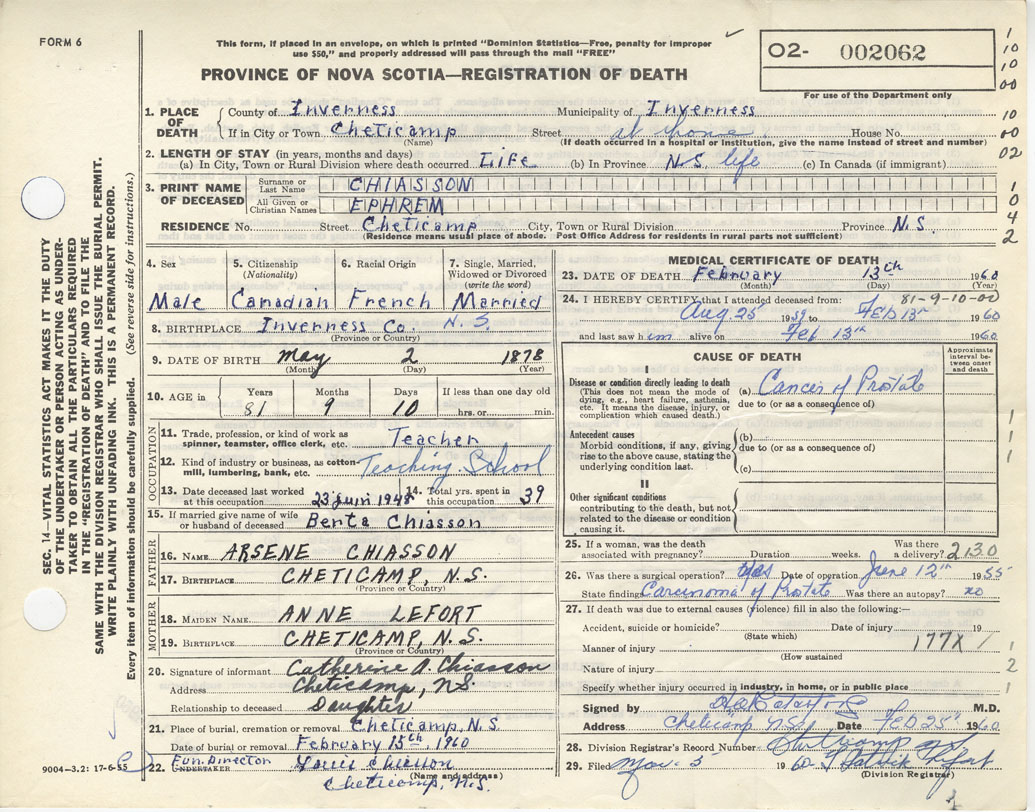 FORM 6
This form, if placed in an envelope, on which is printed "Dominion Statistics—Free, penalty for improper
use $50," and properly addressed will pass through the mail "FREE"
O2- 002062
PROVINCE OF NOVA SCOTIA—REGISTRATION OF DEATH
For use of the Department only
1. PLACE OF DEATH { County of Inverness Municipality of Inverness
If in City or Town Cheticamp Street at home House No.
(Name) (If death occurred in a hospital or institution, give the name instead of street and number)
2. LENGTH OF STAY (in years, months and days)
(a) In City, Town or Rural Division where death occurred Life (b) In Province N.S. life (c) In Canada (if immigrant)
3. PRINT NAME OF DECEASED
Surname or Last Name CHIASSON
All Given or Christian Names EPHREM
RESIDENCE No. Street Cheticamp City, Town or Rural Division Province N.S.
(Residence means usual place of abode. Post Office Address for residents in rural parts not sufficient)
4. Sex Male
5. Citizenship (Nationality) Canadian
6. Racial Origin French
7. Single, Married, Widowed or Divorced (write the word) Married
8. BIRTHPLACE Inverness Co. N.S.
(Province or Country)
9. DATE OF BIRTH May 2 1878
(Month) (Day) (Year)
10. AGE in Years Months Days If less than one day old
81 9 10 hrs. or min.
OCCUPATION
11. Trade, profession, or kind of work as spinner, teamster, office clerk, etc. Teacher
12. Kind of industry or business, as cotton-mill, lumbering, bank, etc. Teaching School
13. Date deceased last worked at this occupation 23 juin 1948
14. Total yrs. spent in this occupation 39
15. If married give name of wife or husband of deceased Benta Chiasson
FATHER
16. NAME ARSENE CHIASSON
17. BIRTHPLACE CHETICAMP, N.S.
(Province or Country)
MOTHER
18. MAIDEN NAME ANNE LEFORT
19. BIRTHPLACE CHETICAMP, N.S.
(Province or Country)
20. Signature of informant Catherine A. Chiasson
Address Cheticamp, N.S.
Relationship to deceased Daughter
21. Place of burial, cremation or removal Cheticamp, N.S.
Date of burial or removal February 15th, 1960
22. Fun. Director UNDERTAKER Louis Chiasson
(Name and address)
Cheticamp, N.S.
9004—3.2: 17-6-55
MEDICAL CERTIFICATE OF DEATH
23. DATE OF DEATH February 13th 1960
(Month) (Day)
24. I HEREBY CERTIFY that I attended deceased from: 81-9-10-00
Aug. 25 1959 to Feb 13th 1960
and last saw him alive on Feb 13th 1960
CAUSE OF DEATH
Approximate interval between onset and death
I
Disease or condition directly leading to death
(This does not mean the mode of dying, e.g., heart failure, asthenia, etc. It means the disease, injury, or complication which caused death.)
(a) Cancer of Prostate
due to (or as a consequence of)
Antecedent causes
Morbid conditions, if any, giving rise to the above cause, stating the underlying condition last.
(b)
due to (or as a consequence of)
(c)
II
Other significant conditions
contributing to the death, but not related to the disease or condition causing it.
25. If a woman, was the death associated with pregnancy? Duration weeks. Was there a delivery? 2130
26. Was there a surgical operation? yes Date of operation June 12th 1955
State finding Carcinoma of Prostate Was there an autopsy? no
27. If death was due to external causes (violence) fill in also the following:—
Accident, suicide or homicide? Date of injury 19
(State which)
Manner of injury 177X
(How sustained
Nature of injury
Specify whether injury occurred in industry, in home, or in public place
Signed by M.D.
Address Cheticamp N.S. Date Feb 25th 1960
28. Division Registrar's Record Number
29. Filed Mar. 3 1960
(Division Registrar)
SEC. 14—VITAL STATISTICS ACT MAKES IT THE DUTY
OF THE UNDERTAKER OR PERSON ACTING AS UNDER-
TAKER TO OBTAIN ALL THE PARTICULARS REQUIRED
IN THE "REGISTRATION OF DEATH" AND TO FILE THE
SAME WITH THE DIVISION REGISTRAR WHO SHALL ISSUE THE BURIAL PERMIT.
WRITE PLAINLY WITH UNFADING INK. THIS IS A PERMANENT RECORD.
Every item of information should be carefully supplied. (See reverse side for instructions.)
1
10
10
00
10
00
02
1
0
4
2
1
1
1
1
2
1